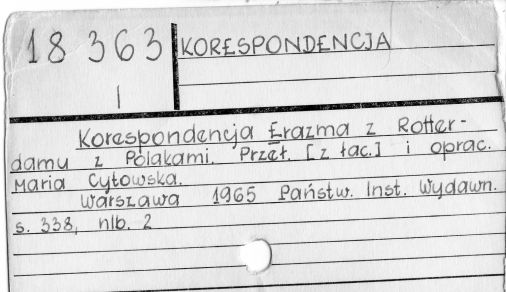 18 363
I
KORESPONDENCJA
Korespondencja Erazma z Rotter-
damu z Polakami. Przeł. [z łac.] i oprac.
Maria Cytowska.
Warszawa 1965 Państw. Inst. Wydawn.
s. 338, nlb. 2